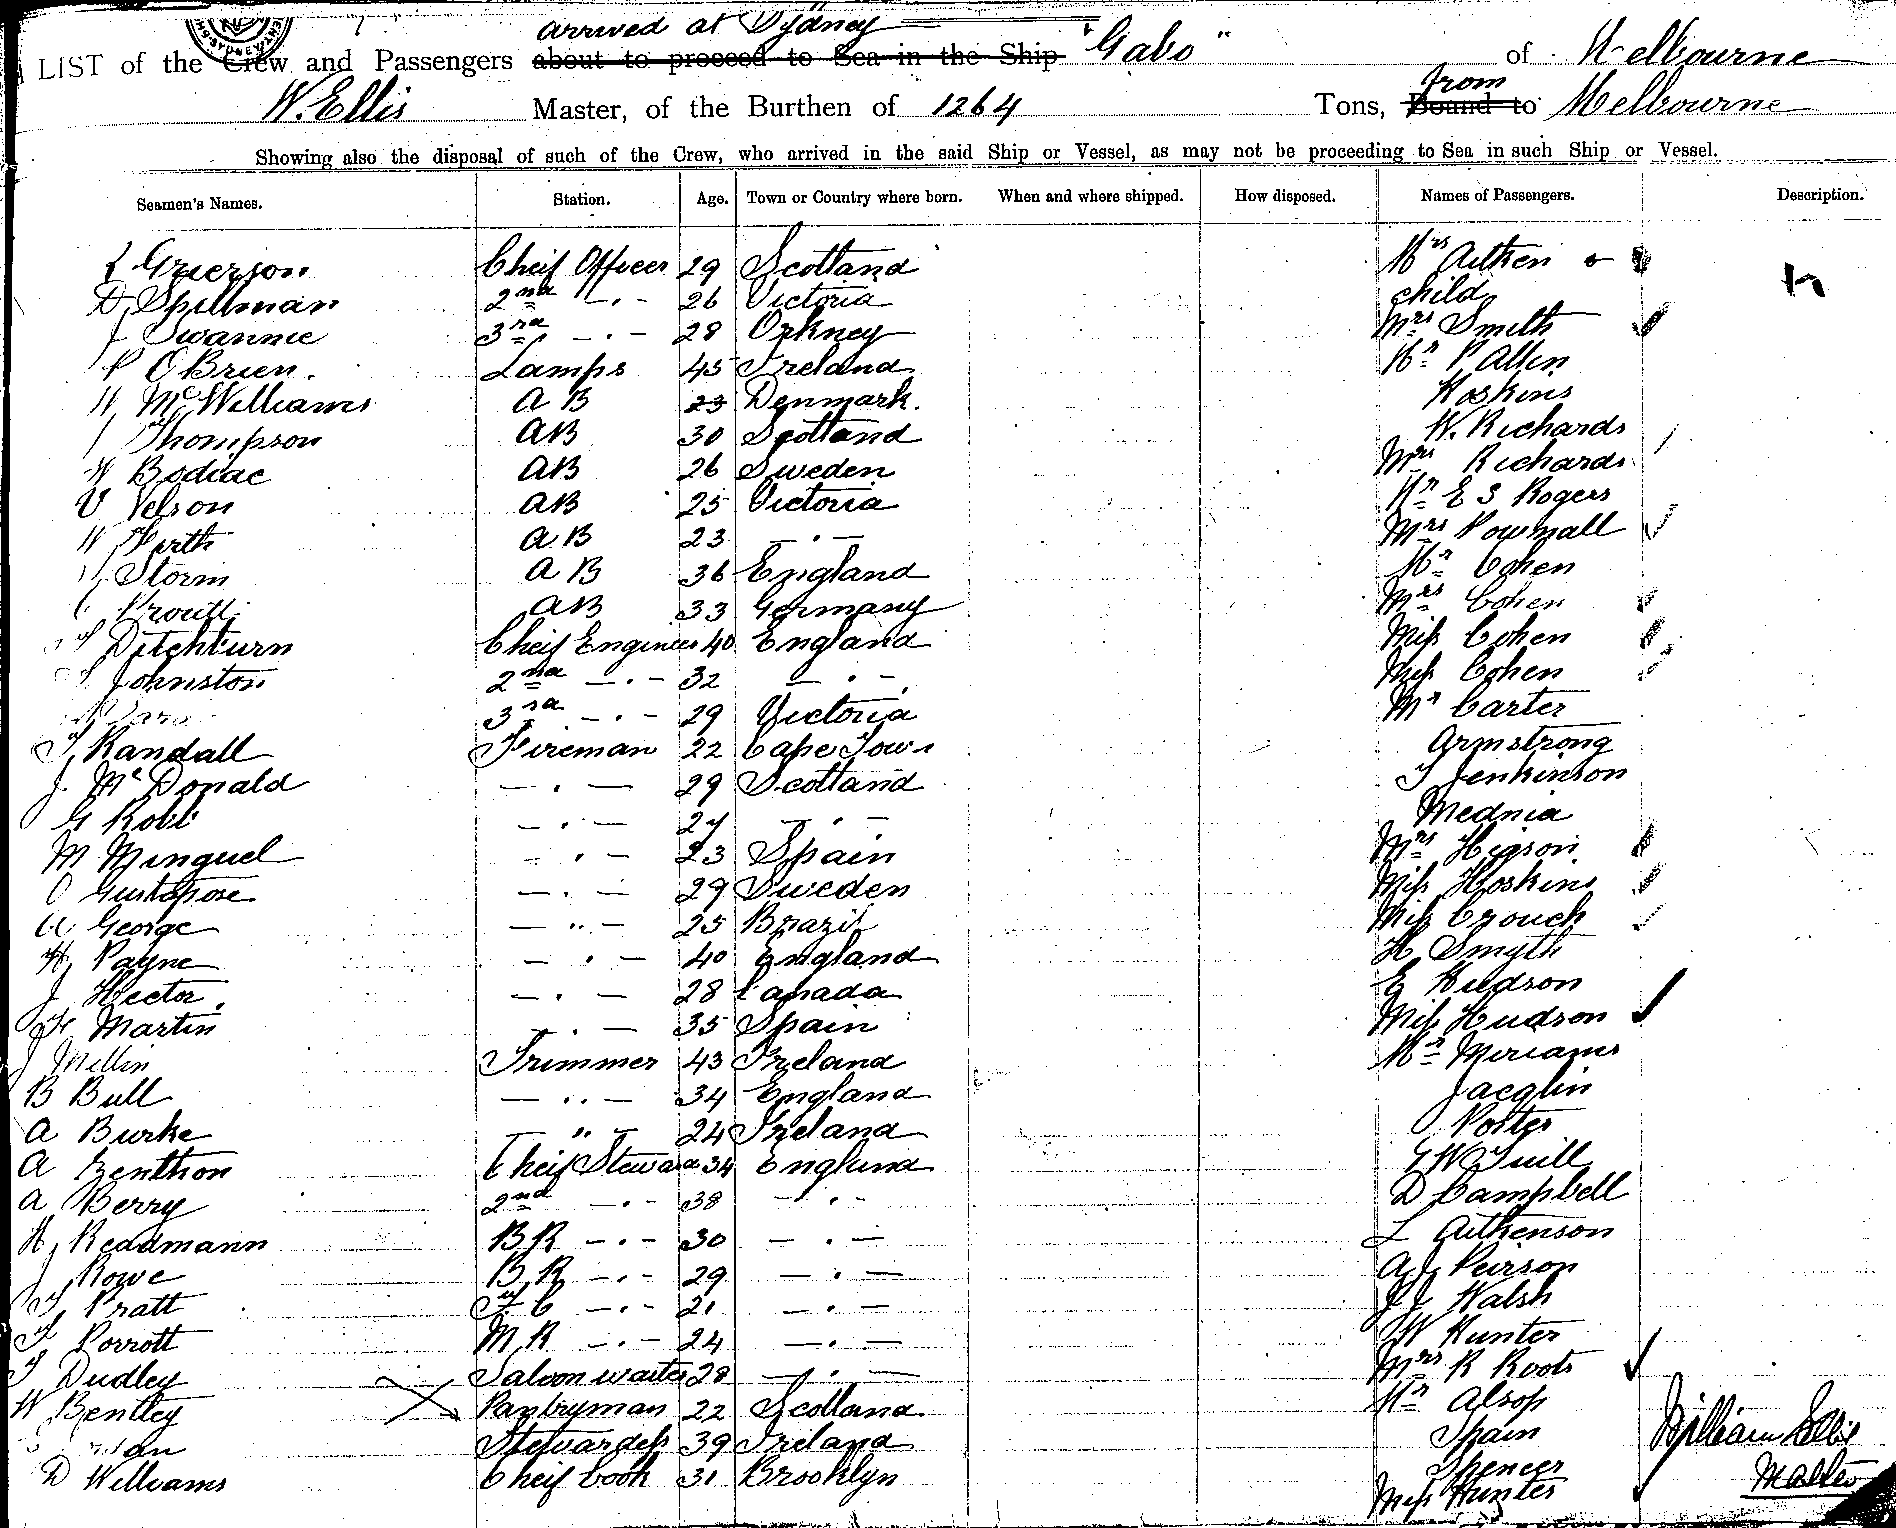 arrived at Sydney
LIST of the Crew and Passengers about to proceed to Sea in the Ship "Gabo" of Melbourne
from
W. Ellis Master, of the Burthen of 1264 Tons, Bound to Melbourne
Showing also the disposal of such of the Crew, who arrived in the said Ship or Vessel, as may not be proceeding to Sea in such Ship or Vessel.
Seamen's Names. Station. Age. Town or Country where born. When and where shipped. How disposed. Names of Passengers. Description.
Grierson Cheif Officer 29 Scotland Mrs Aitken &
D Spillman 2nd -·- 26 Victoria child
J Swannie 3rd -·- 28 Orkney Mrs Smith
P O'Brien. Lamps 45 Ireland Mr P Allen
W McWilliams A B 23 Denmark. Hoskins
Thompson AB 30 Scotland W. Richards
W Bodiac AB 26 Sweden Mrs Richards
V Nelson AB 25 Victoria Mr E S Rogers
W Firth A B 23 -·- Mrs Pownall
Storm A B 36 England Mr Cohen
AB 33 Germany Mrs Cohen
Ditchburn Cheif Engineer 40 England Miss Cohen
Johnston 2nd -·- 32 -·- Miss Cohen
3rd -·- 29 Victoria Mr Carter
T Randall Fireman 22 Cape Town Armstrong
J. McDonald -·- 29 Scotland T Jenkinson
G Robb -·- 27 -·- Mednia
M Minguel -·- 23 Spain Mrs Higson
O -·- 29 Sweden Miss Hoskins
George -·- 25 Brazil Miss Crouch
H Payne -·- 40 England H Smyth
J Hector. -·- 28 Canada E Hudson
Martin -·- 35 Spain Miss Hudson
J Mellin Trimmer 43 Ireland Mr Meriams
B Bull -··- 34 England Jacglin
A Burke -"- 24 Ireland Porter
A Zenthon Cheif Steward 34 England G W Tuill
A Berry 2nd -·- 38 -·- D Campbell
H Readmann BR -·- 30 -·- L Aitkenson
J Rowe B R -·- 29 -·- A J Peirson
T Pratt F. C -·- 21 -·- J J Walsh
T Porrott M R -·- 24 -·- W Hunter
T Dudley Saloon waiter 28 -·- Mrs R Roots
W Bentley Pantryman 22 Scotland. Mr Alsop
Stewardess 39 Ireland Spain William Ellis
D Williams Cheif Cook 31 Brooklyn Spencer Master
Miss Hunter